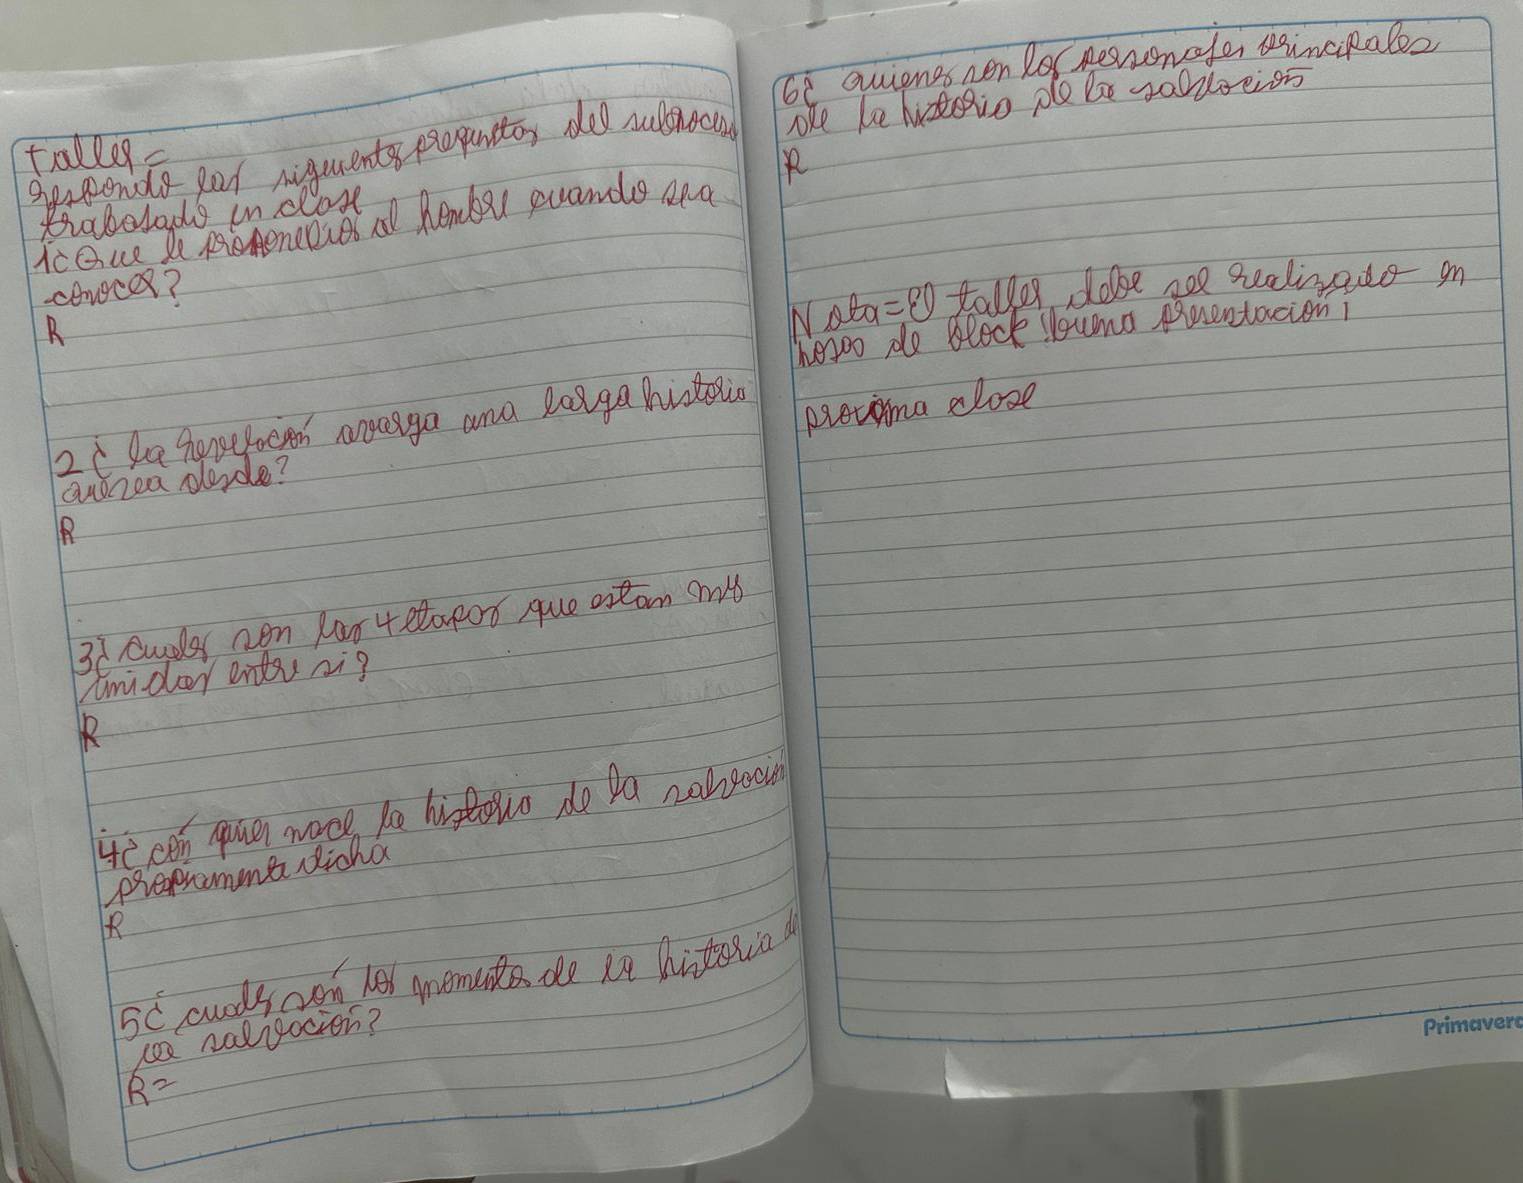 Taller=
Respondo las siguients preguntas del subproceso
trabajado en clase
1¿ Que le propone Dios al hombre cuando sea
conocer?
R
2¿ la Revelación avarga una larga historia
quezea desde?
R
3¿ cuales son las 4 etapas que estan my
unidas entre si?
R
4¿ con quien nace la historia de la salvación
propiamente dicha
R
5¿ cuales son los momentos de la historia de
la salvación?
R=
6¿ quienes son los personajes principales
de la historia de la salvación
R
Nota= El taller debe ser realizado en
hojas de block ¡buena presentación!
proxima clase
Primavera